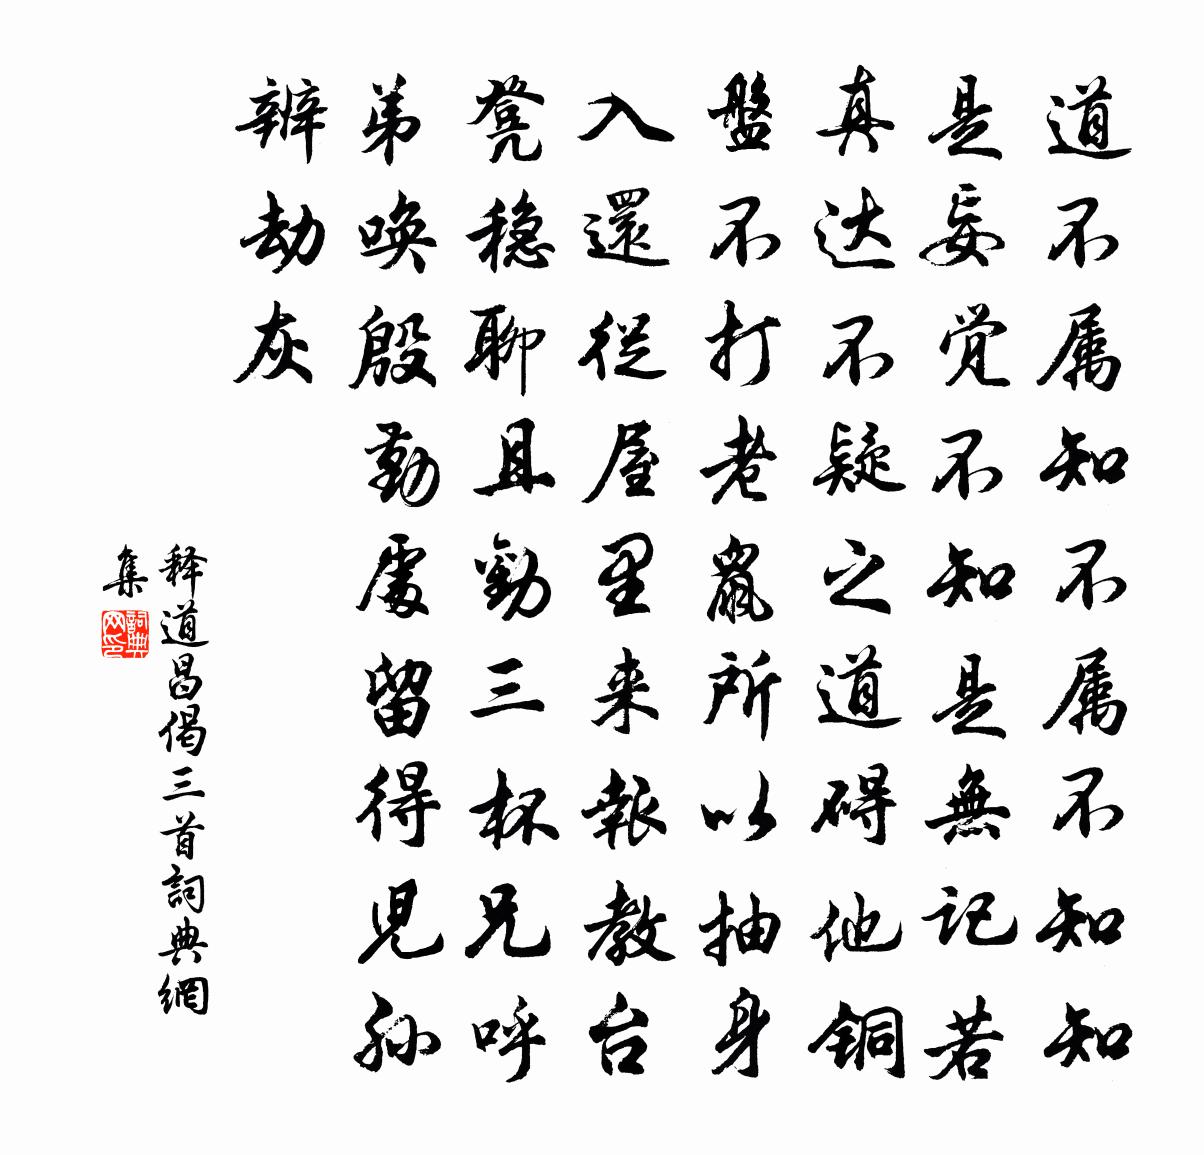 道不属知不属不知知
是妄觉不知是無记若
真达不疑之道碍他铜
盤不打老鼠所以抽身
入還從屋里来報教台
凳稳聊且勸三杯兄呼
弟唤殷勤處留得児孙
辨劫灰
释道昌偈三首詞典網
集
詞典
网印